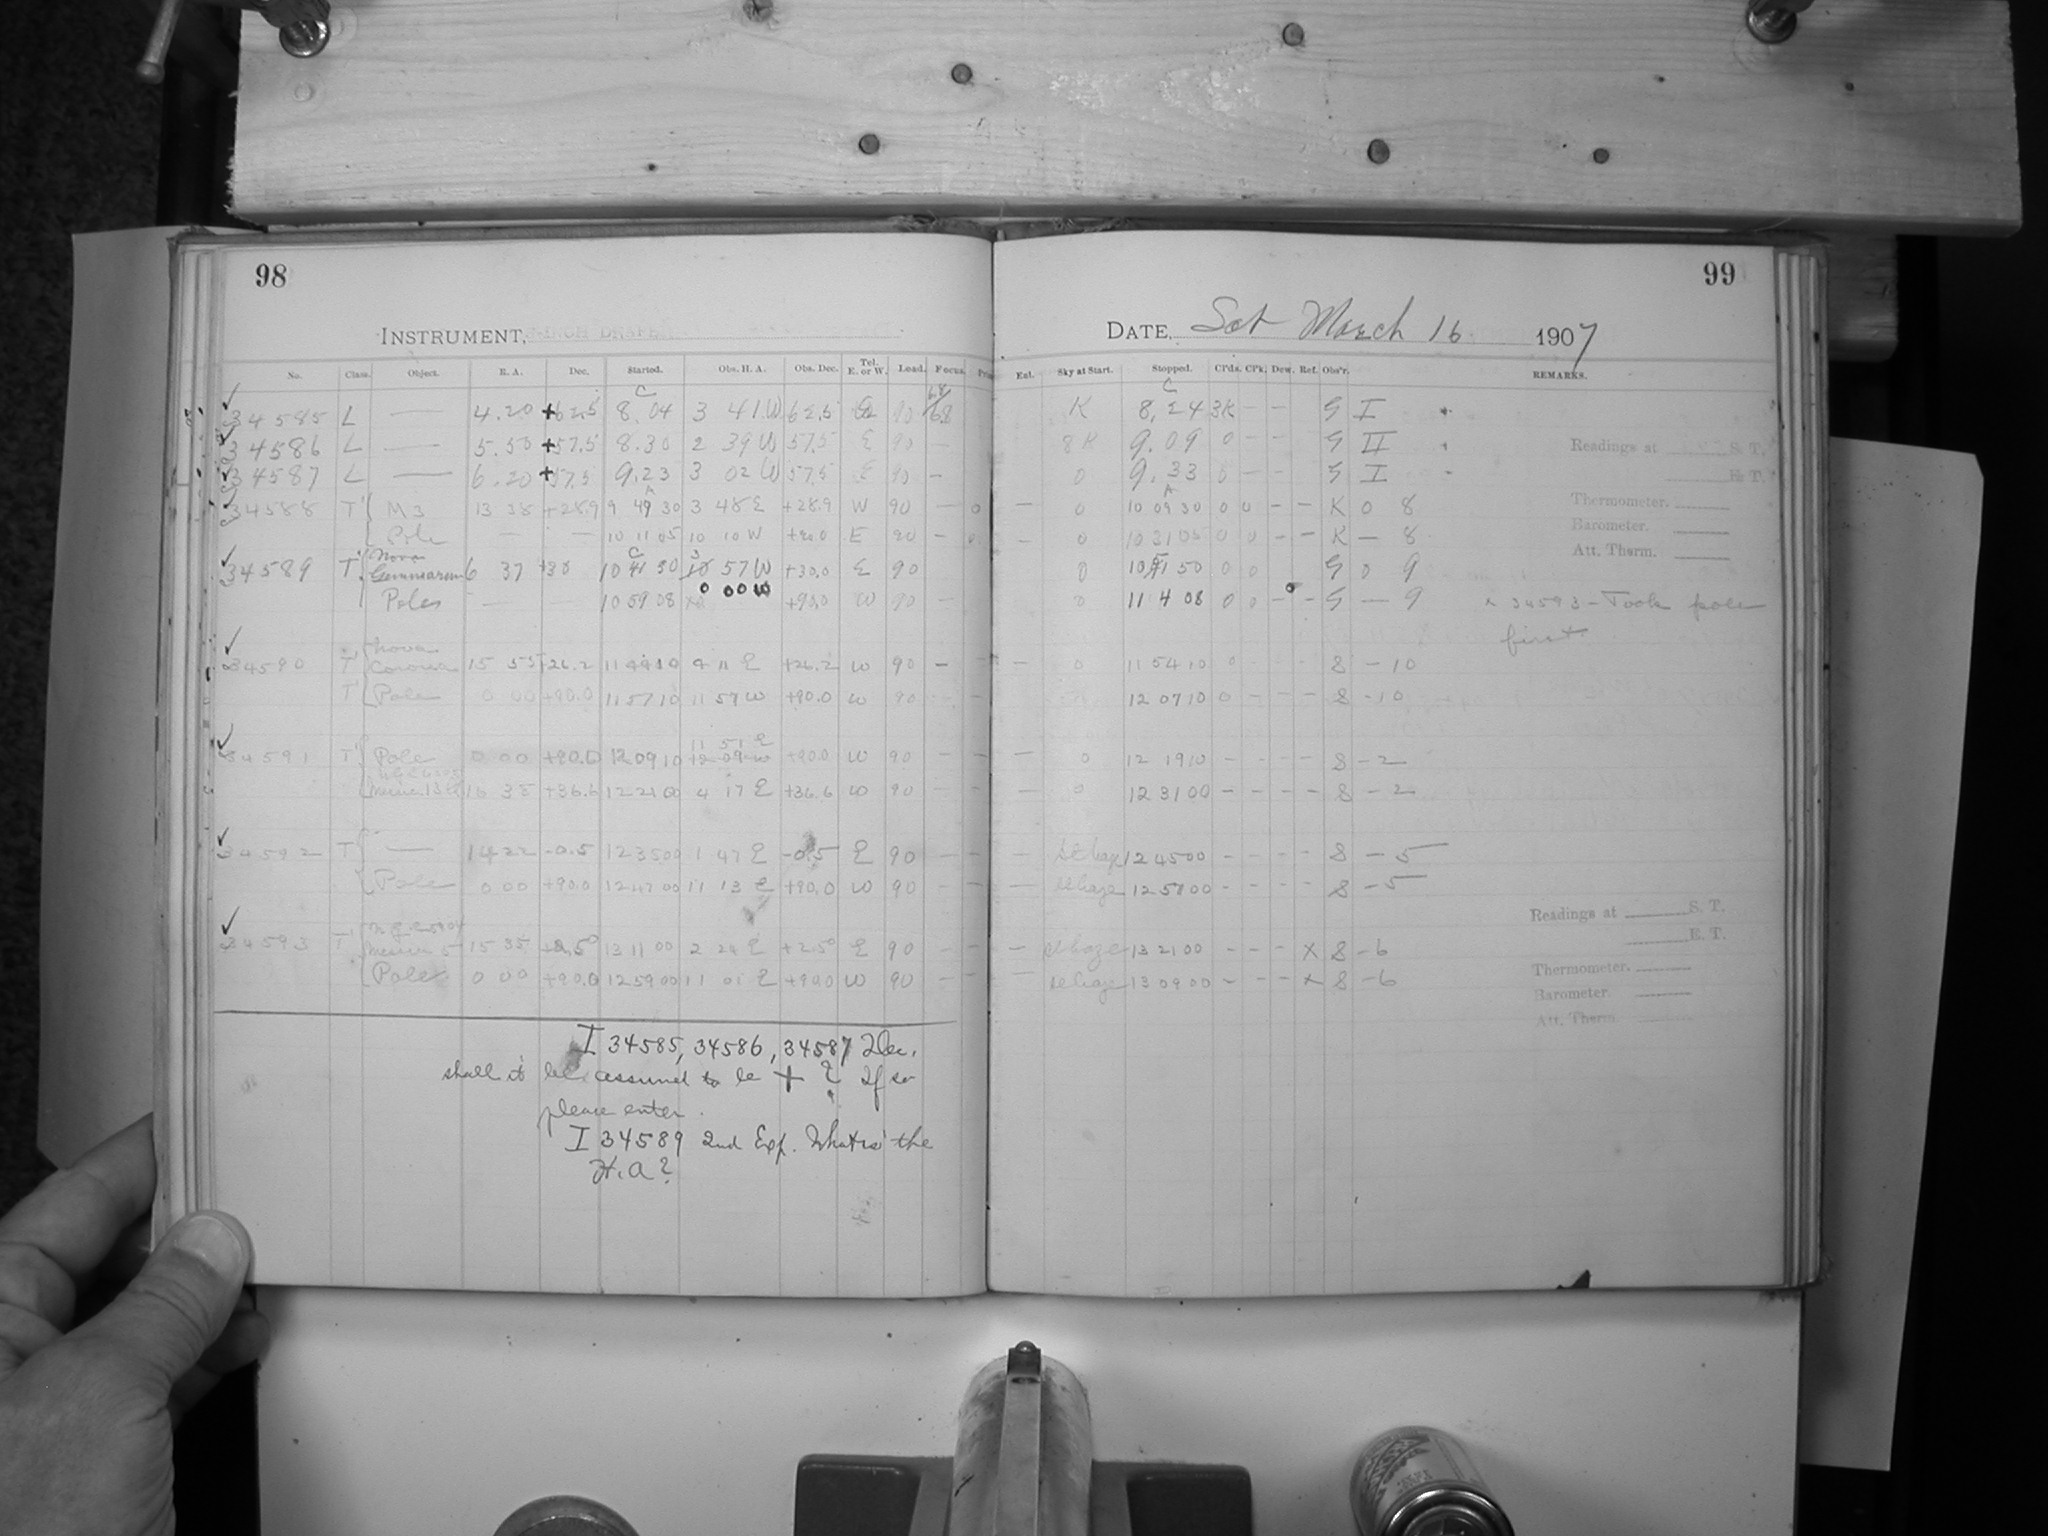 98
INSTRUMENT,
No. Class. Object. R. A. Dec. Started. Obs. H. A. Obs. Dec. Tel. E. or W. Load. Focus.
34585 L — 4.20 +62.5 8.04 3 41 W 62.5 90 68
34586 L — 5.50 +57.5 8.30 2 39 W 57.5 E 90 —
34587 L — 6.20 +57.5 9.23 3 02 W 57.5 E 90 —
34588 T' M3 13 38 +28.9 9 49 30 3 48 E +28.9 W 90 — 0
Pole — — 10 11 05 10 10 W +90.0 E 90 —
34589 T' Nova
Geminorum 6 37 +30 10 41 50 3 57 W +30.0 E 90
Poles — — 10 59 08 0 00 W +90.0 W 90 —
34590 T' Nova
Corona 15 55 +26.2 11 44 10 4 11 E +26.2 W 90 —
T' Pole 0 00 +90.0 11 57 10 11 59 W +90.0 W 90 —
11 51 E
34591 T' Pole 0 00 +90.0 12 09 10 12 09 W +90.0 W 90 —
16 38 +36.6 12 21 00 4 17 E +36.6 W 90 —
34592 T' — 14 22 -0.5 12 35 00 1 47 E -0.5 E 90 —
Pole 0 00 +90.0 12 47 00 11 13 E +90.0 W 90 —
N.G.C. 5904
34593 T' Messier 5 15 35 +2.5 13 11 00 2 24 E +2.5 E 90 —
Pole 0 00 +90.0 12 59 00 11 01 E +90.0 W 90 —
I 34585, 34586, 34587 Dec.
shall it be assumed to be + ? If so
please enter.
I 34589 2nd Exp. What is the
H.A?
99
DATE, Sat March 16 1907
Ent. Sky at Start. Stopped. Cl'ds. Cl'k. Dew. Ref. Obs'r. REMARKS.
K 8.24 3K — — S I
8K 9.09 0 — — S II
0 9.33 0 — — S I
— 0 10 09 30 0 0 — — K 0 8
— 0 10 31 05 0 0 — — K — 8
0 10 51 50 0 0 S 0 9
0 11 4 08 0 0 — S — 9 x 34593 — Took pole
first
— 0 11 54 10 0 - - - S - 10
12 07 10 0 - - - S - 10
— 0 12 19 10 - - - - S - 2
— 0 12 31 00 - - - - S - 2
— haze 12 45 00 - - - - S - 5
— haze 12 57 00 - - - - S - 5
— haze 13 21 00 - - - X S - 6
— haze 13 09 00 - - - X S - 6
Readings at S. T.
E. T.
Thermometer.
Barometer.
Att. Therm.
Readings at S. T.
E. T.
Thermometer.
Barometer.
Att. Therm.